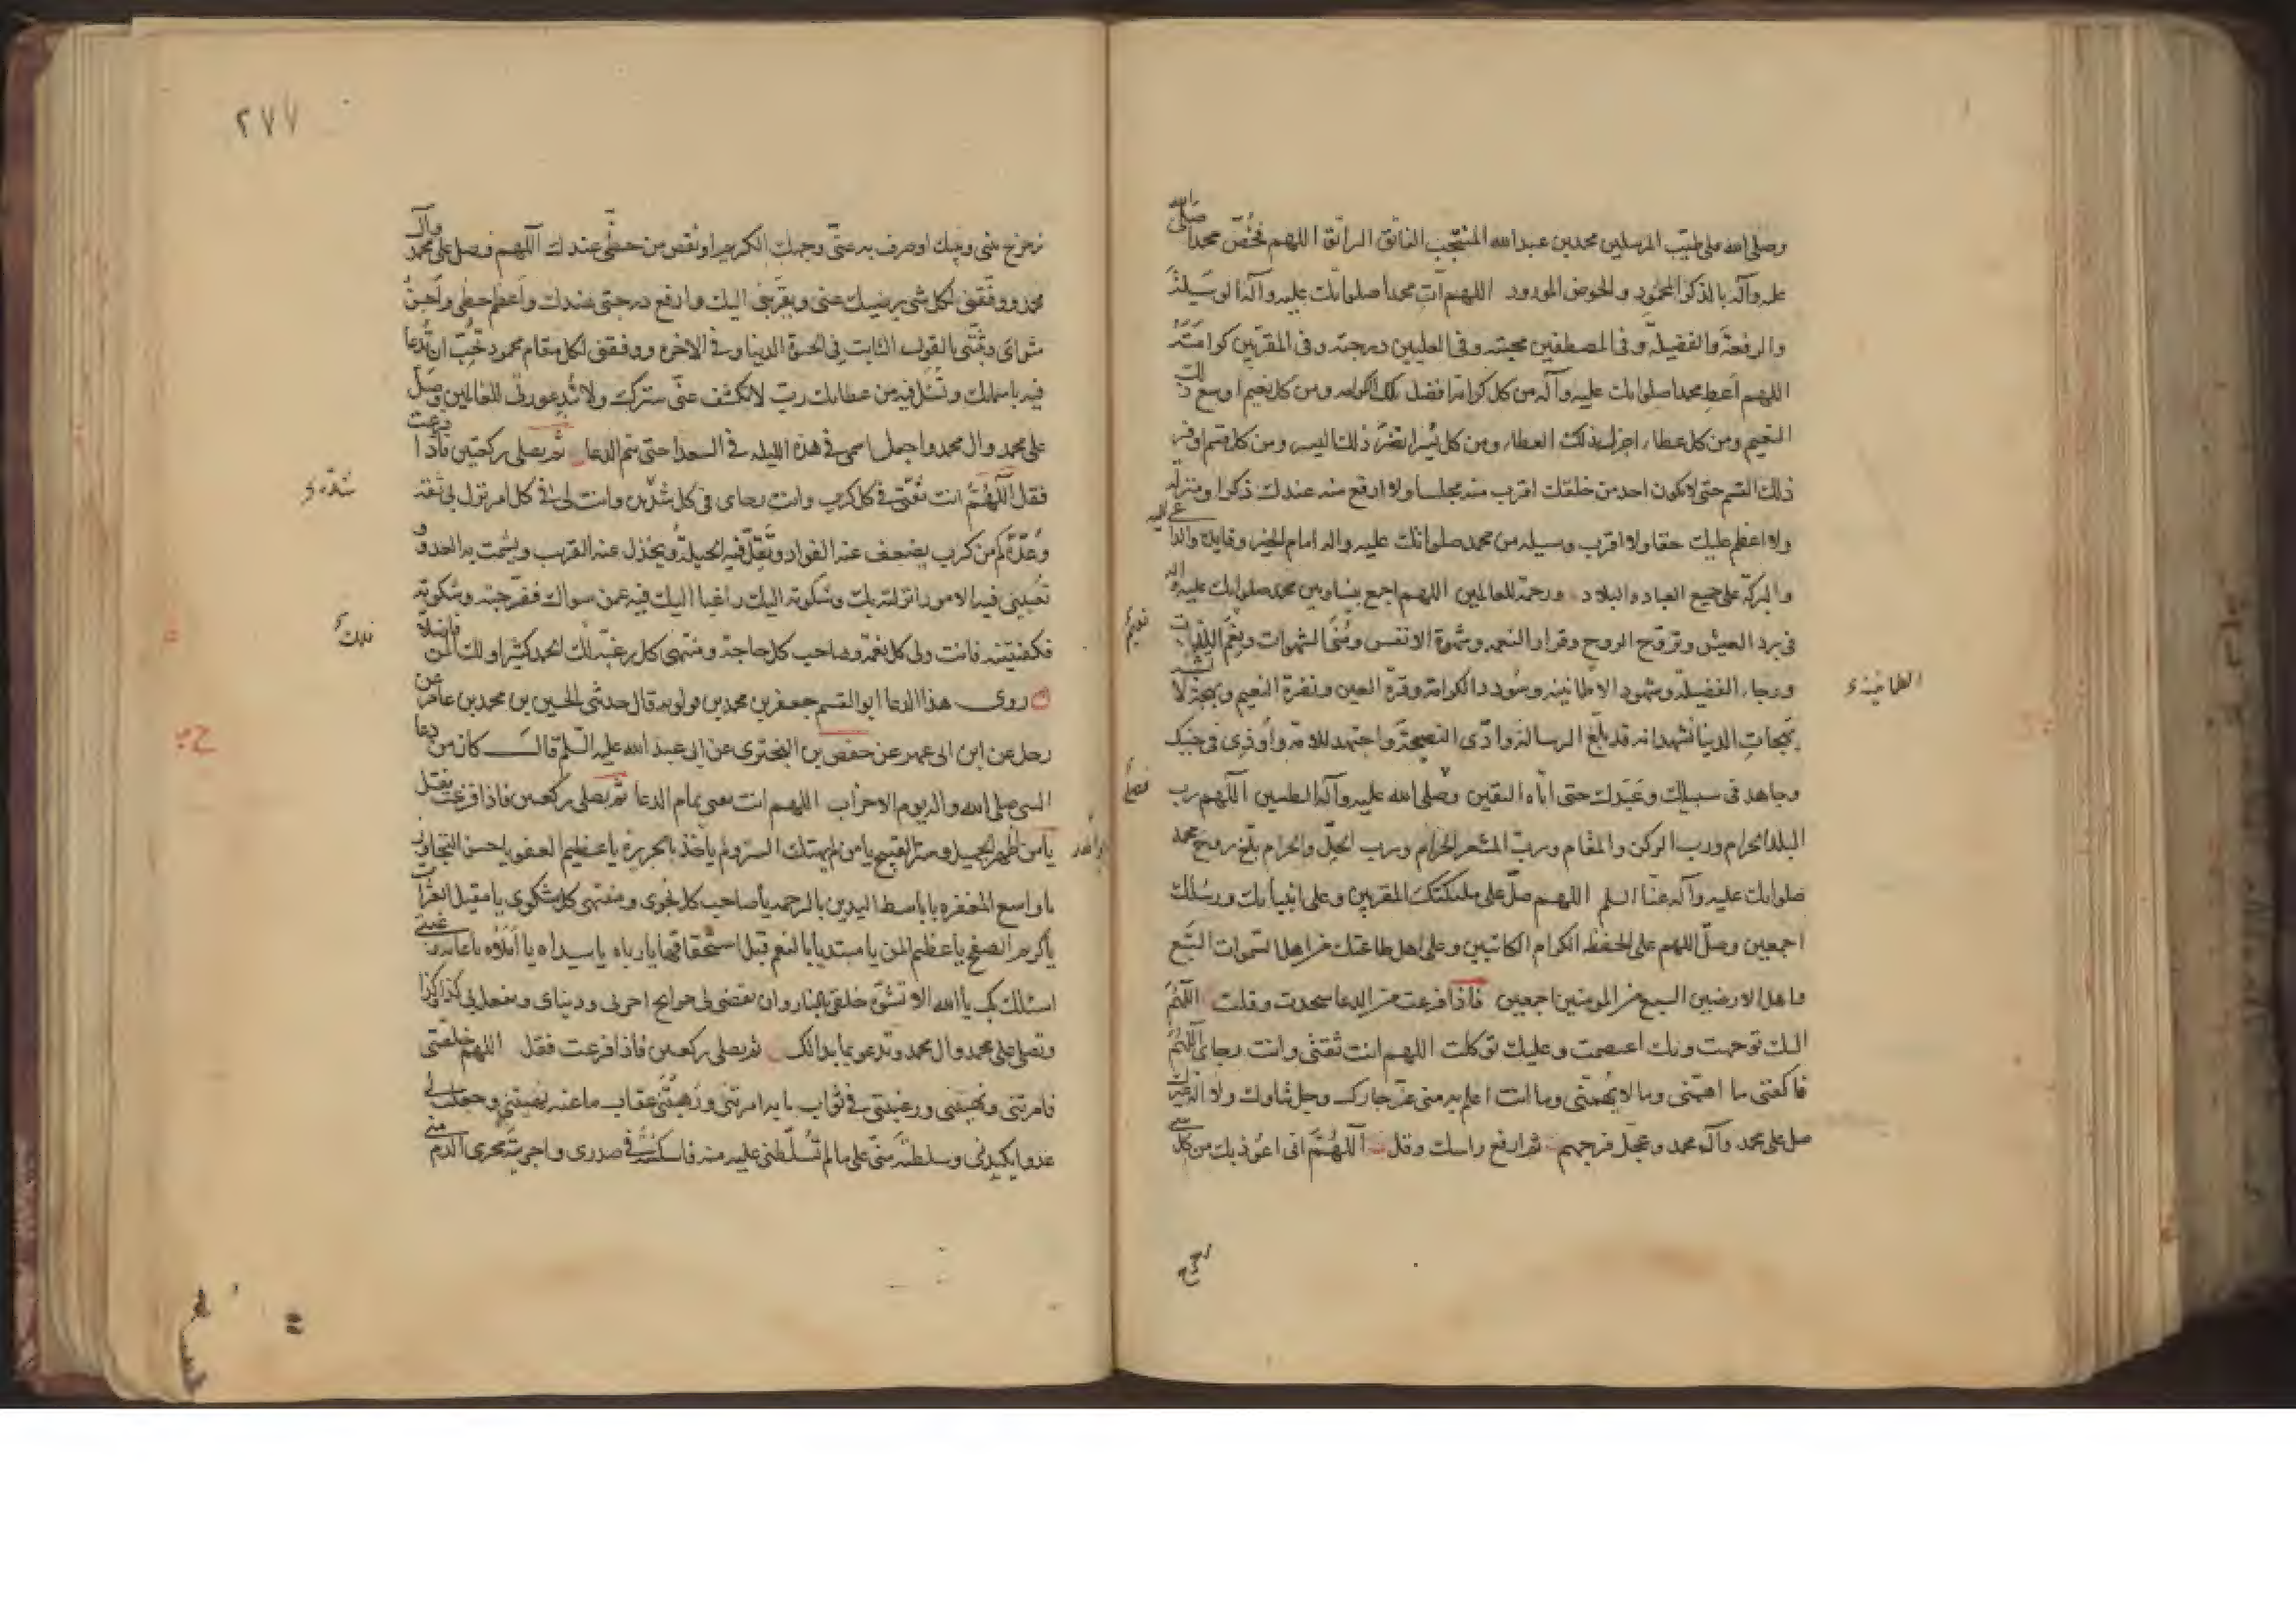 وصلى الله على طيب المرسلين محمد بن عبد الله المنتجب الفاتق الراتق اللهم فخص محمدا صلى الله
عليه وآله بالذكر المحمود والحوض المورود اللهم آت محمدا صلواتك عليه وآله الوسيلة
والرفعة والفضيلة وفى المصطفين محبته وفى العليين درجته وفى المقربين كرامته
اللهم أعط محمدا صلواتك عليه وآله من كل كرامة افضل تلك الكرامة ومن كل نعيم اوسع ذلك
النعيم ومن كل عطاء اجزل ذلك العطاء ومن كل يسر انضر ذلك اليسر ومن كل قسم اوفر
ذلك القسم حتى لا يكون احد من خلقك اقرب منه مجلسا ولا ارفع منه عندك ذكرا ومنزلة
ولا اعظم عليك حقا ولا اقرب وسيلة من محمد صلواتك عليه واله امام الخير وقايده والداعى اليه
والبركة على جميع العباد والبلاد ورحمة للعالمين اللهم اجمع بيننا وبين محمد صلواتك عليه واله
فى برد العيش وتروح الروح وقرار النعمه وشهوة الانفس ومنى الشهوات ونعم اللذات
نعيم
ورجاء الفضيلة وشهود الاطمانينه وسودد الكرامة وقرة العين ونضرة النعيم وبهجة لا تشبه
الطمانينه
بهجات الدنيا نشهد انه قد بلغ الرسالة وادى النصيحة واجتهد للامة واوذى فى جنبك
وجاهد فى سبيلك وعبدك حتى اتاه اليقين وصلى الله عليه وآله الطيبين اللهم رب
فصل
البلد الحرام ورب الركن والمقام ورب المشعر الحرام ورب الحل والحرام بلغ روح محمد
صلواتك عليه وآله عنا السلم اللهم صل على ملئكتك المقربين وعلى انبيائك ورسلك
اجمعين وصل اللهم على الحفظه الكرام الكاتبين وعلى اهل طاعتك من اهل السموات السبع
واهل الارضين السبع من المومنين اجمعين فاذا فرغت من الدعا سجدت وقلت اللهم
اليك توجهت وبك اعتصمت وعليك توكلت اللهم انت ثقتى وانت رجاى اللهم
فاكفنى ما اهمنى وما لا يهمنى وما انت اعلم به منى عز جارك وجل ثناوك ولا اله غيرك
صل على محمد وآل محمد وعجل فرجهم ثم ارفع راسك وقل اللهم انى اعوذ بك من كل شى
٢٧٧
زحزح بينى وبينك او صرف به عنى وجهك الكريم او نقص من حظى عندك اللهم فصل على محمد وآل
محمد ووفقنى لكل شى يرضيك عنى ويقربنى اليك وارفع درجتى عندك واعظم حظى واحسن
مثواى وثبتنى بالقول الثابت فى الحيوة الدنيا وفى الاخره ووفقنى لكل مقام محمود تحب ان تدعا
فيه باسمائك وتسئل فيه من عطائك رب لا تكشف عنى سترك ولا تبد عورتى للعالمين وصل
على محمد وال محمد واجعل اسمى فى هذه الليله فى السعدا حتى تتم الدعا ثم يصلى ركعتين فاذا فرغت
فقل اللهم انت ثقتى فى كل كرب وانت رجاى فى كل شدة وانت لى فى كل امر نزل بى ثقة
وعدة كم من كرب يضعف عنه الفواد وتقل فيه الحيلة ويخذل عنه القريب ويشمت به العدو و
تعيينى فيه الامور انزلته بك وشكوته اليك راغبا اليك فيه عمن سواك ففرجته وشكوته
فكفيتنيه فانت ولى كل نعمة وصاحب كل حاجة ومنتهى كل رغبة لك الحمد كثيرا ولك المن فاضلا
فلك
روى هذا الدعا ابو القسم جعفر بن محمد بن قولويه قال حدثنى الحسين بن محمد بن عامر عن
رجل عن ابن ابى عمير عن حفص بن البخترى عن ابى عبد الله عليه السلم قال كان من دعا
النبى صلى الله واله يوم الاحزاب اللهم انت يعنى تمام الدعا ثم يصلى ركعتين فاذا فرغت فقل
يا من اظهر الجميل وستر القبيح يا من لم يهتك الستر ولم ياخذ بالجريرة يا عظيم العفو يا حسن التجاوز
يا واسع المغفره يا باسط اليدين بالرحمه يا صاحب كل نجوى ومنتهى كل شكوى يا مقيل العثرات
يا كريم الصفح يا عظيم المن يا مبتديا بالنعم قبل استحقاقها يا رباه يا سيداه يا املاه يا غاية رغبتى
اسئلك بك يا الله الا تشوه خلقى بالنار وان تقضى لى حوايج اخرتى ودنياى وتفعل بى كذا وكذا
وتصلى على محمد وال محمد وتدعو بما بدا لك ثم يصلى ركعتين فاذا فرغت فقل اللهم خلقتنى
فامرتنى ونهيتنى ورغبتنى فى ثواب ما به امرتنى ورهبتنى عقاب ما عنه نهيتنى وجعلت لى
عدوا يكيدنى وسلطته منى على ما لم تسلطنى عليه منه فاسكنته فى صدرى واجريته مجرى الدم منى